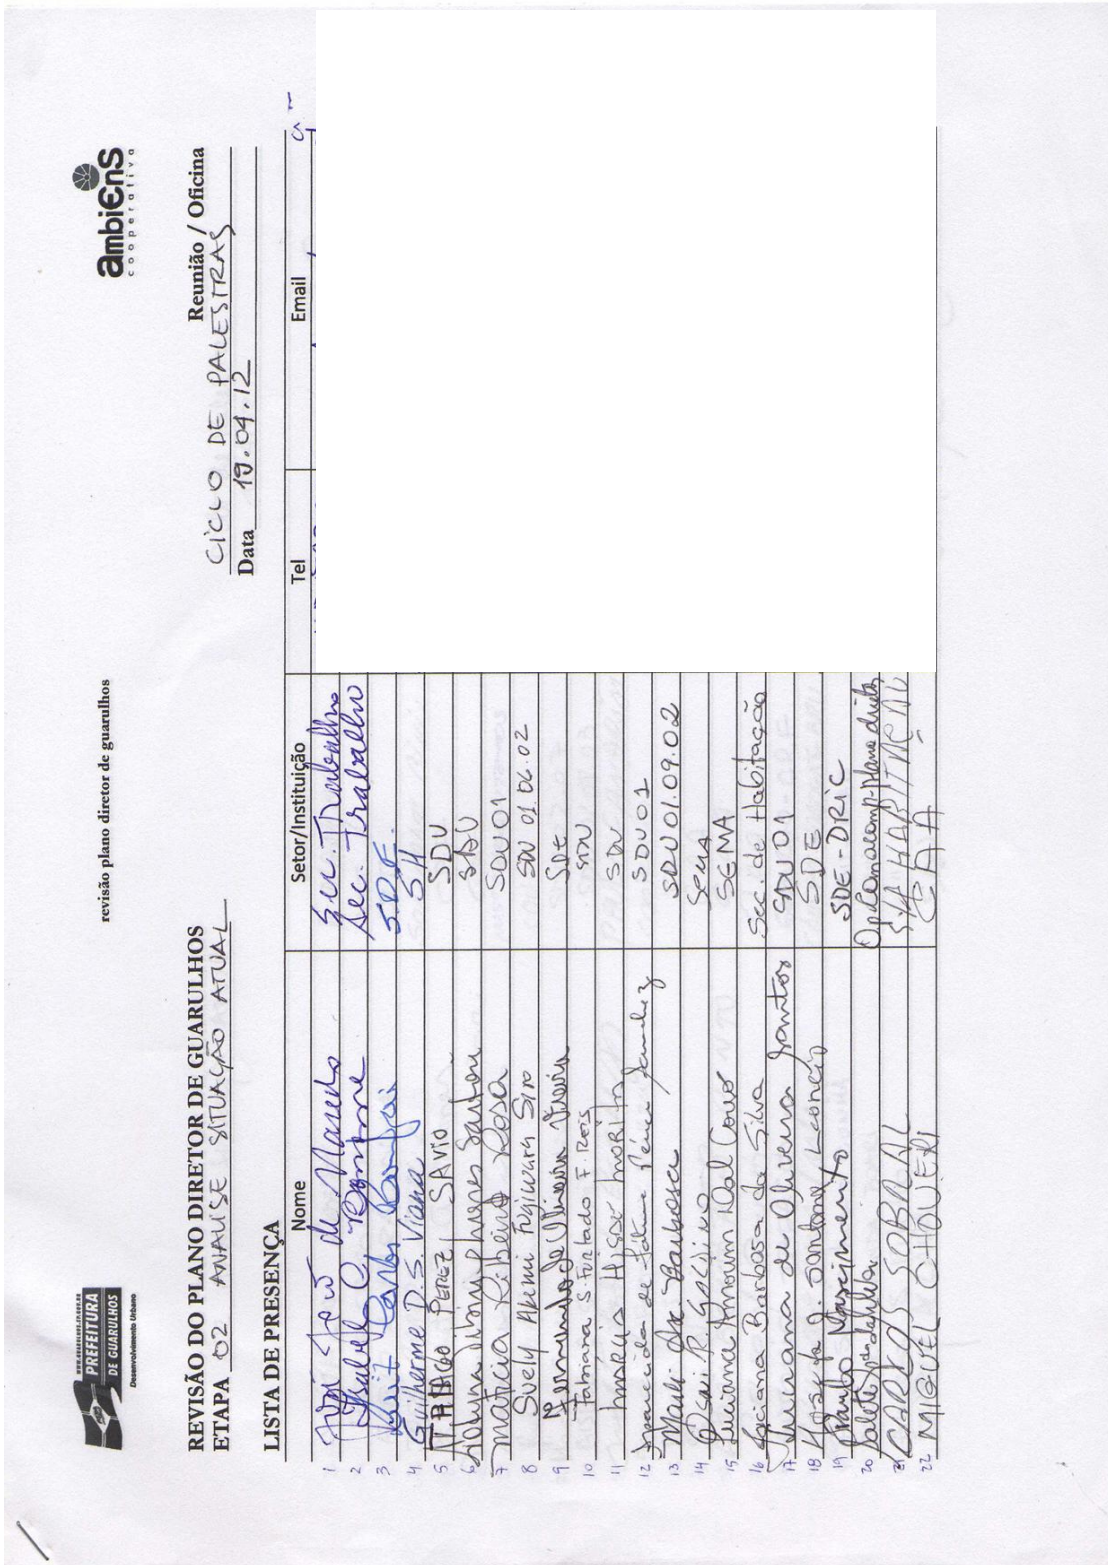 WWW.GUARULHOS.SP.GOV.BR
PREFEITURA
DE GUARULHOS
Desenvolvimento Urbano
revisão plano diretor de guarulhos
ambiens
cooperativa
REVISÃO DO PLANO DIRETOR DE GUARULHOS
Reunião / Oficina
ETAPA 02 ANALISE SITUAÇÃO ATUAL
CICLO DE PALESTRAS
Data 19.04.12
LISTA DE PRESENÇA
Nome Setor/Instituição Tel Email
1 José de Macedo Sec. Trabalho
2 Isabel C. Sec. Trabalho
3 Carlos S.D.E.
4 Guilherme D.S. Viana SH
5 THIAGO PEREZ SAVIO SDU
6 SDU
7 Maticia Liberio Rosa SDU 01
8 Suely Akemi Fujiwara Siro SDU 01.06.02
9 Fernando de Oliveira Vieira SDE
10 Fabiana S. Furtado F. Reis SDU
11 Marcus Hisao Morito SDU
12 Aparecida de Fátima Pérez Sanchez SDU01
13 Marli Ap. Barbosa SDU 01.09.02
14 R. SEMA
15 Luciana Amorim Dal Couo SEMA
16 Luciana Barbosa da Silva Sec. de Habitação
17 Luciana de Oliveira Santos SDU 01
18 Josefa J. Santos Leoncio SDE
19 Paulo Nascimento SDE-DRIC
20 Salete
21 CARLOS SOBRAL
22 MIGUEL CHOUERI